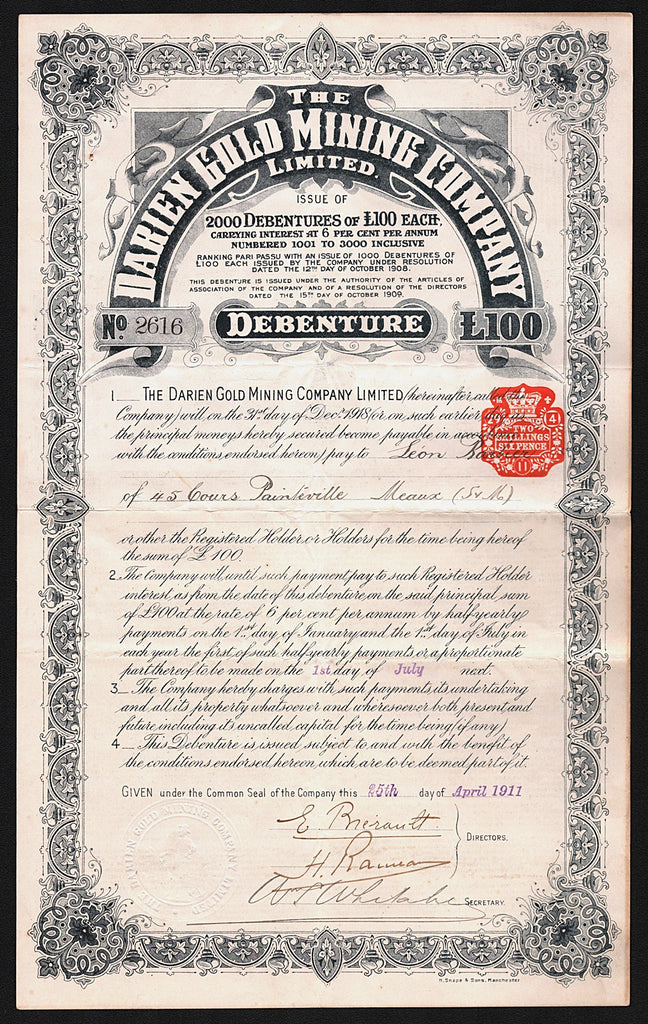 THE
DARIEN GOLD MINING COMPANY
LIMITED.
ISSUE OF
2000 DEBENTURES OF £100 EACH,
CARRYING INTEREST AT 6 PER CENT PER ANNUM
NUMBERED 1001 TO 3000 INCLUSIVE
RANKING PARI PASSU WITH AN ISSUE OF 1000 DEBENTURES OF
£100 EACH ISSUED BY THE COMPANY UNDER RESOLUTION
DATED THE 12TH DAY OF OCTOBER 1908.
THIS DEBENTURE IS ISSUED UNDER THE AUTHORITY OF THE ARTICLES OF
ASSOCIATION OF THE COMPANY AND OF A RESOLUTION OF THE DIRECTORS
DATED THE 15TH DAY OF OCTOBER 1909.
No. 2616 DEBENTURE £100
1 THE DARIEN GOLD MINING COMPANY LIMITED (hereinafter called the
Company) will, on the 31st day of Dec. 1918 (or on such earlier day as
the principal moneys hereby secured become payable in
with the conditions endorsed hereon) pay to Leon
TWO
SHILLINGS
SIX PENCE
11
of 45 Cours Meaux (S & M)
or other the Registered Holder or Holders for the time being hereof
the sum of £100.
2. The Company will, until such payment pay to such Registered Holder
interest as from the date of this debenture on the said principal sum
of £100 at the rate of 6 per cent per annum by half-yearly
payments on the 1st day of January and the 1st day of July in
each year the first of such half-yearly payments or a proportionate
part thereof to be made on the 1st day of July next.
3 The Company hereby charges with such payments its undertaking
and all its property whatsoever and wheresoever both present and
future including its uncalled capital for the time being (if any)
4 This Debenture is issued subject to and with the benefit of
the conditions endorsed hereon which are to be deemed part of it.
GIVEN under the Common Seal of the Company this 25th day of April 1911
THE DARIEN GOLD MINING COMPANY LIMITED
DIRECTORS.
SECRETARY.
H. Snape & Sons, Manchester